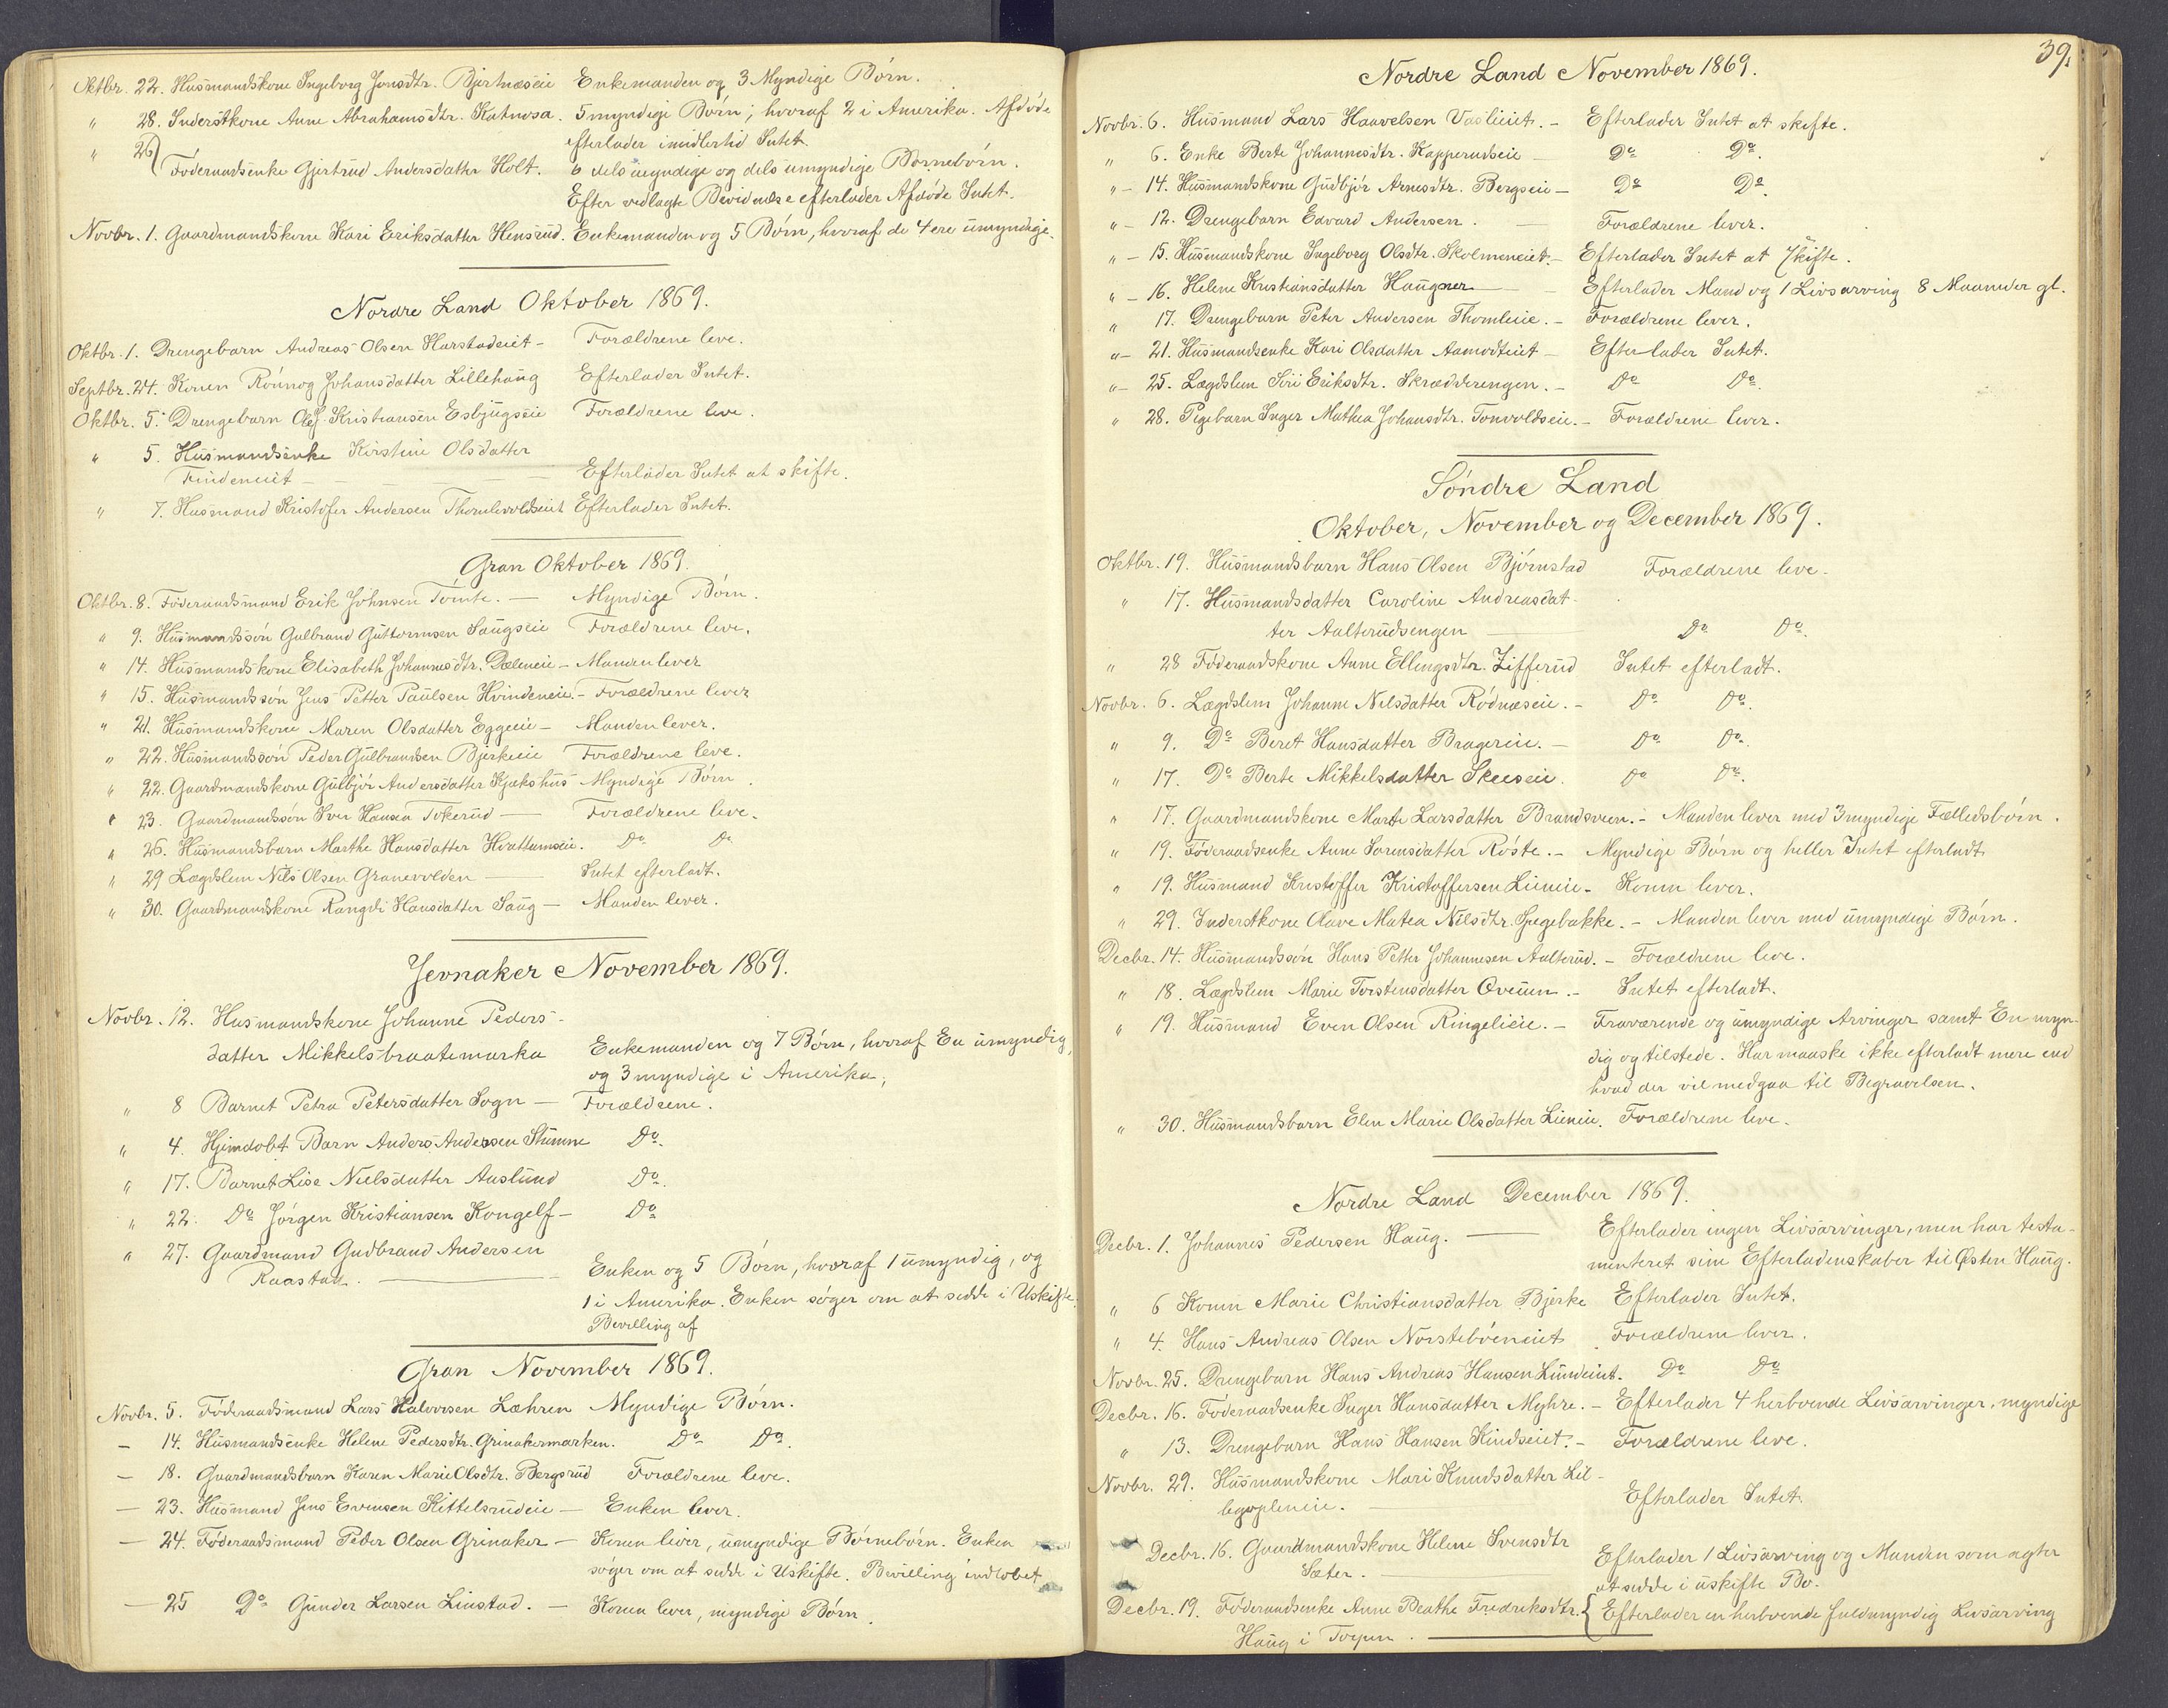 Oktbr. 22. Husmandskone Ingeborg Jonsdtr. Bjertnæseie Enkemanden og 3 Myndige Børn.
" 28. Inderstkone Anne Abrahamsdtr. Katnosa. 5 myndige Børn; hvoraf 2 i Amerika. Afdøde
efterlader imidlertid Intet.
" 26 Føderaadsenke Gjertrud Andersdatter Holt. 6 dels myndige og dels umyndige Børnebørn.
Efter vedlagte Bevidnelse efterlader Afdøde Intet.
Novbr. 1. Gaardmandskone Kari Eriksdatter Hensrud. Enkemanden og 5 Børn, hvoraf de 4 ere umyndige.
Nordre Land Oktober 1869.
Oktbr. 1. Drengebarn Andreas Olsen Harstadeiet - Forældrene leve.
Septbr. 24. Konen Rønnog Johansdatter Lillehaug Efterlader Intet.
Oktbr. 5. Drengebarn Olef Kristiansen Esbjugseie Forældrene leve.
" 5. Husmandsenke Kirstine Olsdatter
Findeneiet - Efterlader Intet at skifte.
" 7. Husmand Kristofer Andersen Thomlevoldseiet Efterlader Intet.
Gran Oktober 1869.
Oktbr. 8. Føderaadsmand Erik Johnsen Tømte. - Myndige Børn.
" 9. Husmandssøn Gulbrand Guttormsen Saugseie Forældrene leve.
" 14. Husmandskone Elisabeth Johannesdtr. Dæleneie - Manden lever
" 15. Husmandssøn Jens Petter Paulsen Hvindeneie. - Forældrene lever
" 21. Husmandskone Maren Olsdatter Eggeeie - Manden lever.
" 22. Husmandssøn Peder Gulbrandsen Bjerkeeie Forældrene leve.
" 22. Gaardmandskone Gulbjør Andersdatter Kjækshus Myndige Børn.
" 23. Gaardmandssøn Iver Hansen Tokerud - Forældrene leve.
" 26. Husmandsbarn Marthe Hansdatter Hvattumseie. Do Do
" 29 Lægdslem Nils Olsen Granevolden - Intet efterladt.
" 30. Gaardmandskone Rangdi Hansdatter Saug - Manden lever.
Jevnaker November 1869.
Novbr. 12. Husmandskone Johanne Peders-
datter Mikkelsbraatemarka Enkemanden og 7 Børn, hvoraf En umyndig,
og 3 myndige i Amerika.
" 8 Barnet Petra Petersdatter Sogn - Forældrene.
" 4. Hjemdøbt Barn Anders Andersen Stumne Do.
" 17. Barnet Lise Nielsdatter Aaslund Do.
" 22. Do Jørgen Kristiansen Kongelf - Do
" 27. Gaardmand Gudbrand Andersen
Raastad. - Enken og 5 Børn, hvoraf 1 umyndig, og
1 i Amerika. Enken søger om at sidde i Uskifte.
Bevilling af
Gran November 1869.
Novbr. 5. Føderaadsmand Lars Halvorsen Læhren Myndige Børn.
- 14. Husmandsenke Helene Pedersdtr. Grinakermarken. Do Do.
- 18. Gaardmandsbarn Karen Marie Olsdtr. Bergsrud Forældrene leve.
- 23. Husmand Jens Evensen Kittelsrudeie - Enken lever.
- 24. Føderaadsmand Peder Olsen Grinaker - Konen lever, umyndige Børnebørn. Enken
søger om at sidde i Uskifte. Bevilling indløbet
- 25 Do Gunder Larsen Linstad. - Konen lever, myndige Børn.
39.
Nordre Land November 1869.
Novbr. 6. Husmand Lars Haavelsen Vaslieiet. - Efterlader Intet at skifte.
" 6. Enke Berte Johannesdtr. Kapperudseie - Do Do.
" - 14. Husmandskone Gudbjør Arnesdtr. Bergseie - Do Do.
" - 12. Drengebarn Edvard Andersen. - Forældrene lever.
" - 15. Husmandskone Ingeborg Olsdtr. Skolmeneiet. - Efterlader Intet at skifte.
" - 16. Helene Kristiansdatter Haugner - Efterlader Mand og 1 Livsarving 8 Maaneder gl.
" 17. Drengebarn Peter Andersen Thomleeie. - Forældrene lever.
" - 21. Husmandsenke Kari Olsdatter Aamodteiet - Efterlader Intet.
" - 25. Lægdslem Siri Eriksdtr. Skrædderengen. - Do Do.
" 28. Pigebarn Inger Mathea Johansdtr. Tonvoldseie. - Forældrene lever.
Søndre Land
Oktober, November og December 1869.
Oktbr. 19. Husmandsbarn Hans Olsen Bjørnstad Forældrene leve.
" 17. Husmandsdatter Caroline Andreasdat-
ter Aalterudsengen - Do Do.
" 28 Føderaadskone Anne Ellingsdtr. Zifferud Intet efterladt.
Novbr. 6. Lægdslem Johanne Nilsdatter Rødnæseie. - Do Do.
" 9. Do Beret Hansdatter Brageriie. - Do Do.
" 17. Do Berte Mikkelsdatter Skeeseie. Do Do.
" 17. Gaardmandskone Marte Larsdatter Brandsveen. - Manden lever med 3 myndige Fælledsbørn.
" 19. Føderaadsenke Anne Sorensdatter Røste. - Myndige Børn og heller Intet efterladt
" 19. Husmand Kristoffer Kristoffersen Lieneie - Konen lever.
" 29. Inderstkone Olave Matea Nilsdtr. Spegebakke. - Manden lever med umyndige Børn.
Decbr. 14. Husmandssøn Hans Petter Johannesen Aalterud. - Forældrene leve.
" 18. Lægdslem Marie Torstensdatter Øveren. - Intet efterladt.
" 19. Husmand Even Olsen Ringelieie. - Fraværende og umyndige Arvinger samt En myn-
dig og tilstede. Har maaske ikke efterladt mere end
hvad der vil medgaa til Begravelsen.
" 30. Husmandsbarn Elen Marie Olsdatter Lieneie. Forældrene leve.
Nordre Land December 1869.
Decbr. 1. Johannes Pedersen Haug. - Efterlader ingen Livsarvinger, men har testa-
menteret sine Efterladenskaber til Østen Haug.
" 6 Konen Marie Christiansdatter Bjerke Efterlader Intet.
" 4. Hans Andreas Olsen Norstebøeneiet Forældrene lever.
Novbr. 25. Drengebarn Hans Andreas Hansen Lundeiet. Do Do
Decbr. 16. Føderaadsenke Inger Hansdatter Myhre. - Efterlader 4 herboende Livsarvinger, myndige
" 13. Drengebarn Hans Hansen Hindseiet. - Forældrene leve.
Novbr. 29. Husmandskone Mari Knudsdatter Lil-
legopleneie. - Efterlader Intet.
Decbr. 16. Gaardmandskone Helene Svensdtr
Sæter. - Efterlader 1 Livsarving og Manden som agter
at sidde i uskifte Bo.
Decbr. 19. Føderaadsenke Anne Beathe Fredriksdtr. Efterlader en herboende fuldmyndig Livsarving
Haug i Torpen.